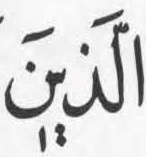 الَّذٖينَ